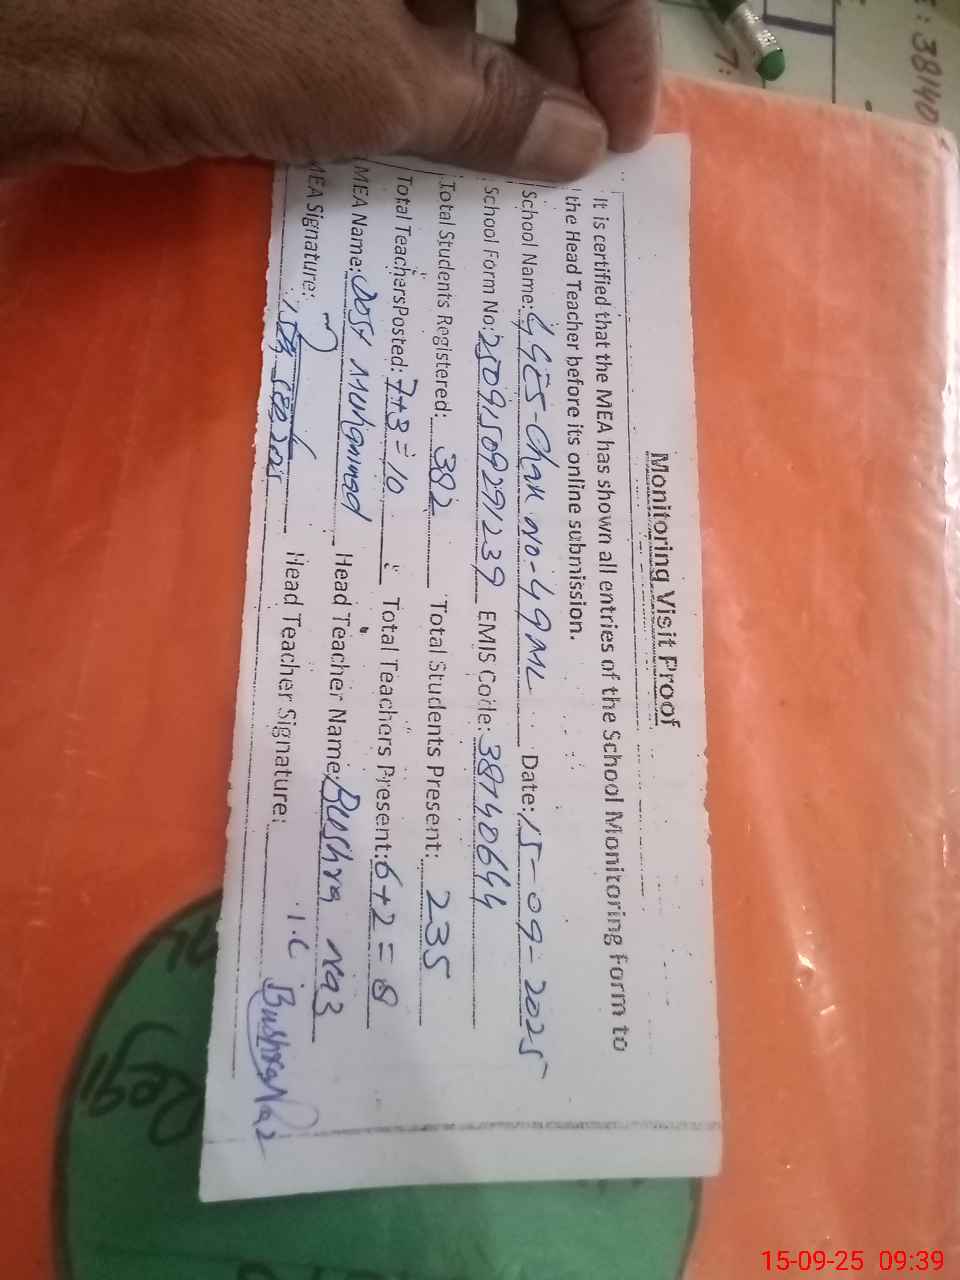 Monitoring Visit Proof
It is certified that the MEA has shown all entries of the School Monitoring Form to
the Head Teacher before its online submission.
School Name: GGES-Chak No-49ML Date: 15-09-2025
School Form No: 25091509291239 EMIS Code: 38140644
Total Students Registered: 382 Total Students Present: 235
Total Teachers Posted: 7+3=10 Total Teachers Present: 6+2=8
MEA Name: Dost Muhammad Head Teacher Name: Bushra Naz
MEA Signature: Head Teacher Signature: I.C Bushra Naz
38140
7:
Regi
15-09-25 09:39